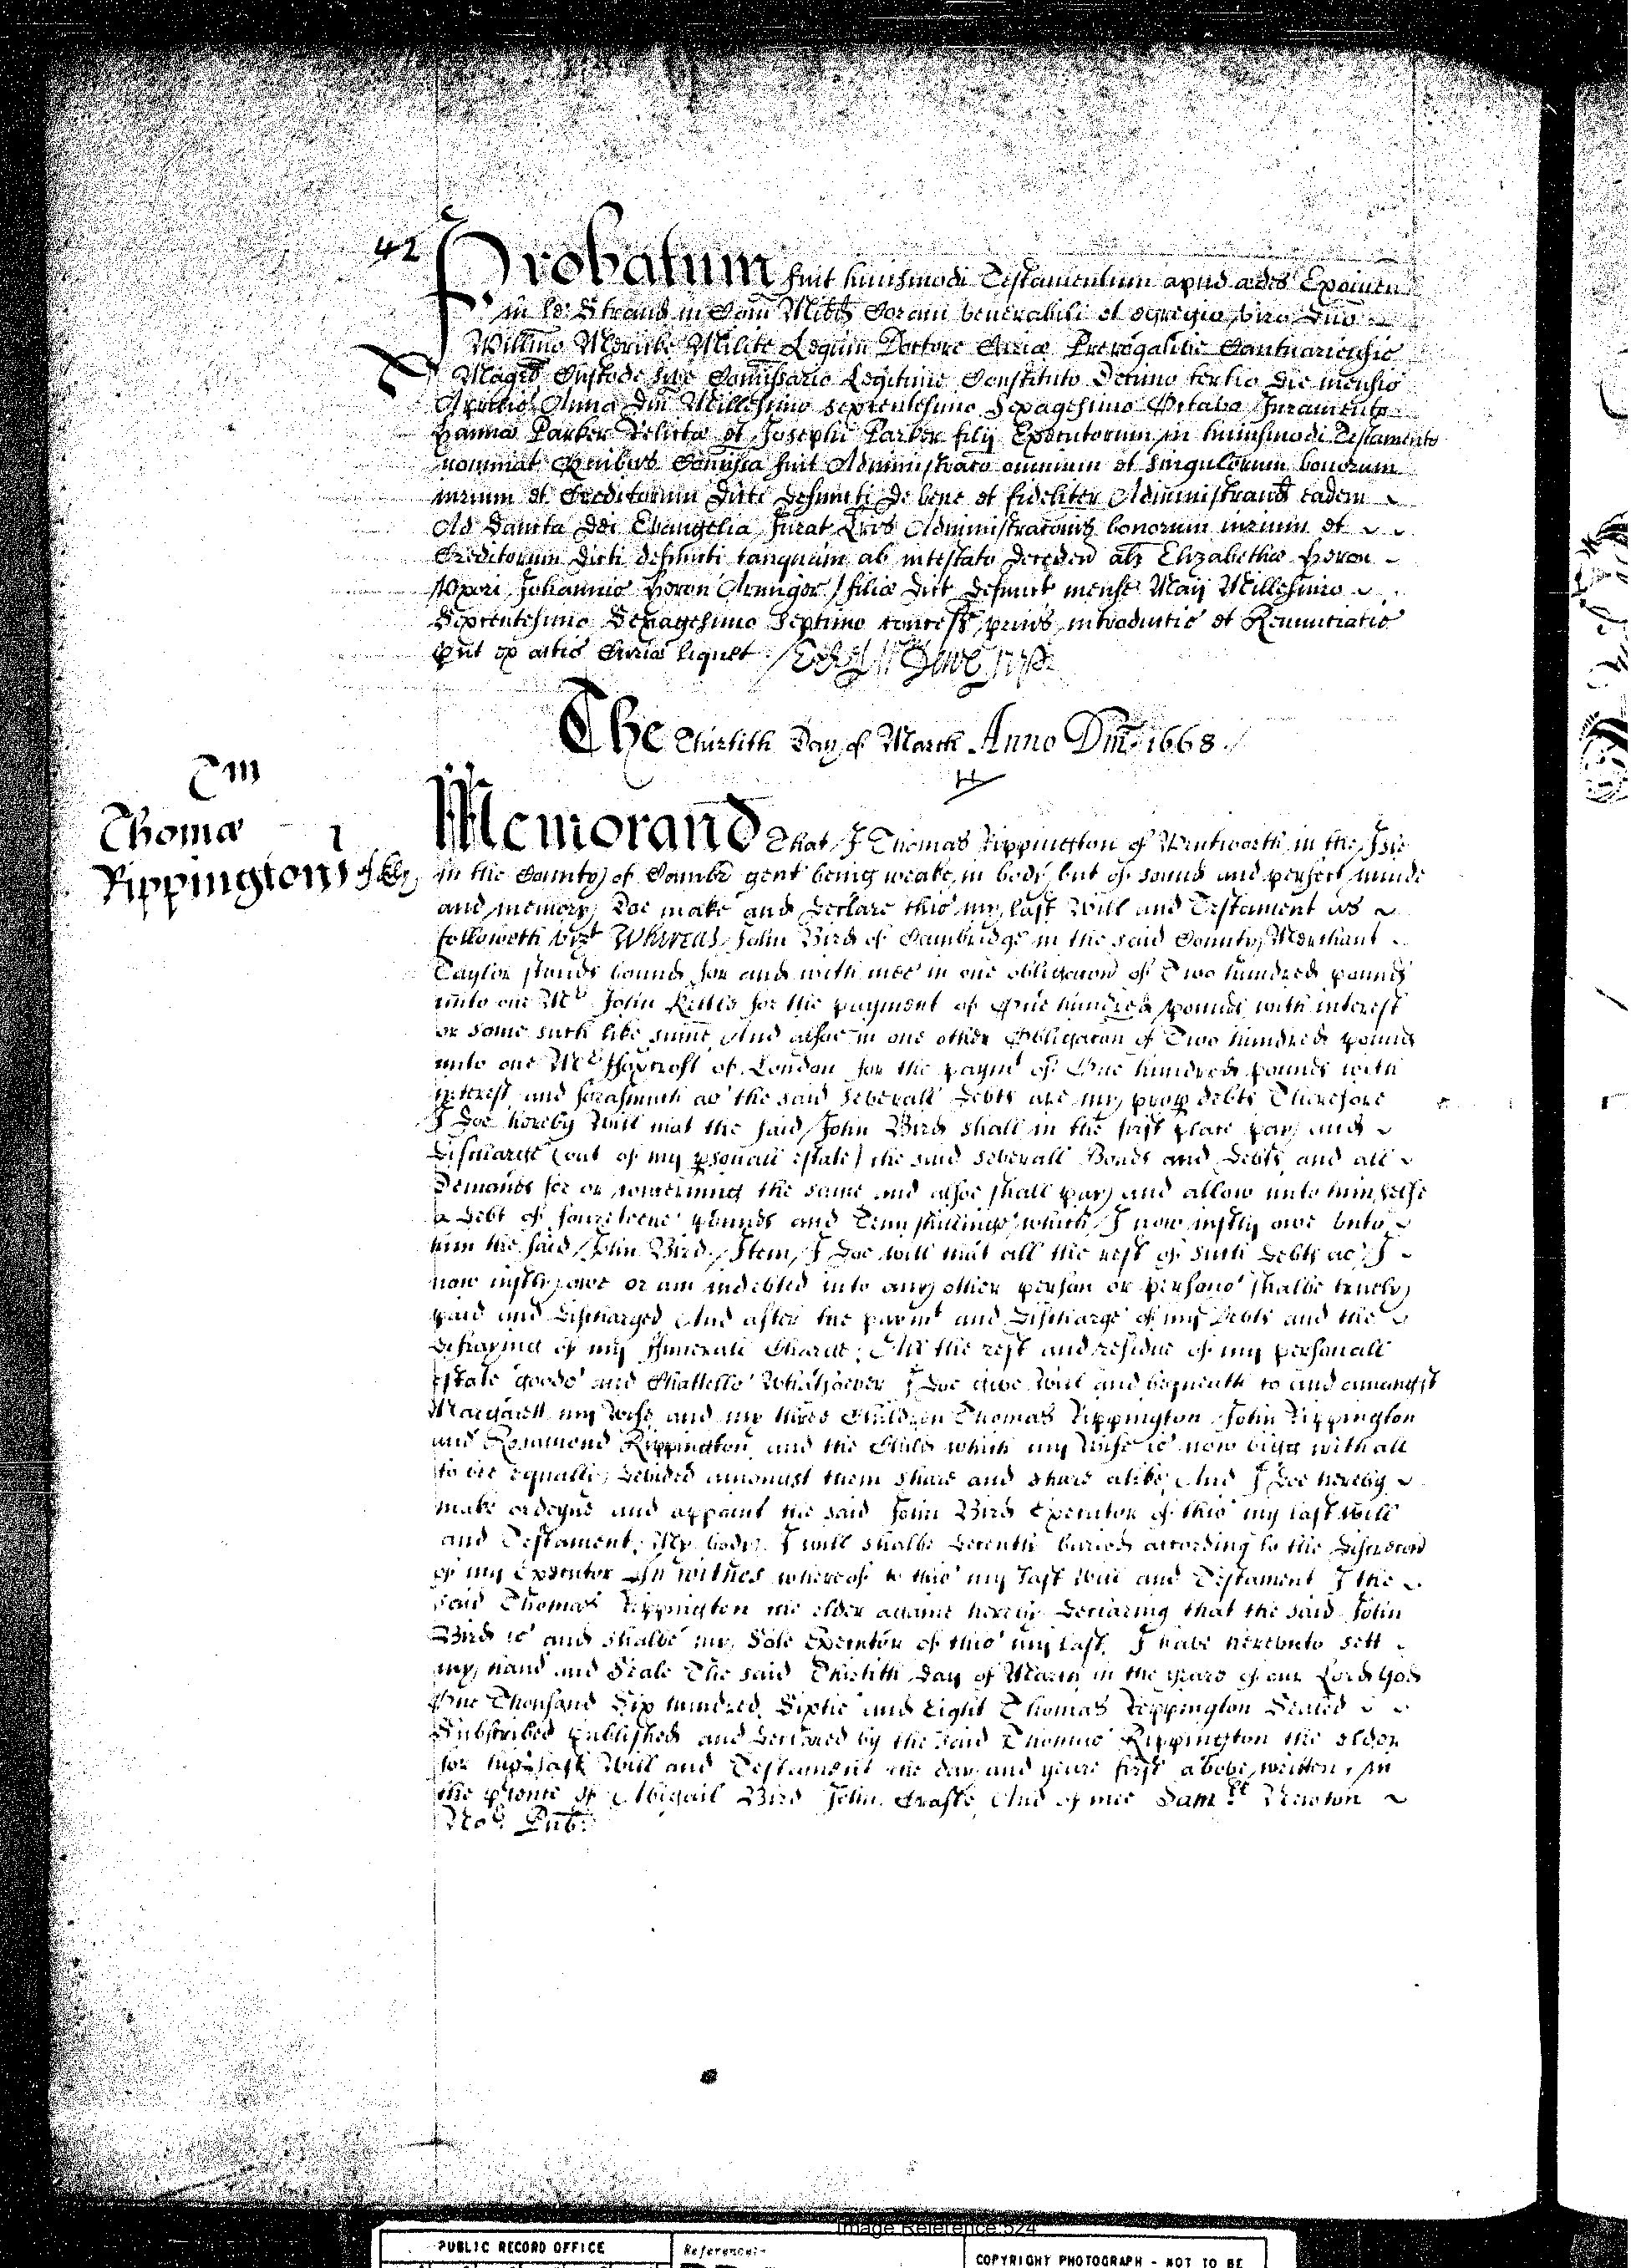 42
Probatum fuit huiusmodi Testamentum apud ædes Exonien
in le Strand in Com Midd Coram venerabili et egregio viro Dno
Willmo Mericke Milite Legum Doctore Curiæ Prerogativæ Cantuariensis
Magro Custode sive Comissario Legitime Constituto Decimo tertio die mensis
Anno Dm Millesimo sexcentesimo Sexagesimo Octavo Juramento
Hannæ Parker Relictæ et Josephi Parker filij Executorum in huiusmodi Testamento
nominat Quibus Comissa fuit Administraco omnium et singulorum bonorum
iurium et Creditorum dicti defuncti De bene et fideliter Administrand eadem
Ad Sancta Dei Evangelia Jurat Lris Administraconis bonorum iurium et
Creditorum dicti defuncti tanquam ab intestato deceden als Elizabethæ Heron
Uxori Johannis Heron Armiger filiæ dict defunct mense Maij Millesimo
Sexcentesimo Sexagesimo Septimo concess prius introductis et Renunciatis
put ex actis Curiæ liquet
The Thirtith Day of March Anno Dm 1668
Tm
Thomæ
Rippington
Memorand That I Thomas Rippington of Wentworth in the Isle
of Ely in the County of Cambr gent being weake in body but of sound and perfect minde
and memory Doe make and declare this my last Will and Testament as
followeth vizt Whereas John Bird of Cambridge in the said County Merchant
Taylor stands bound for and with mee in one obligacon of Two hundred pounds
unto one Mr John for the payment of One hundred pounds with interest
or some such like sume And alsoe in one other Obligacon of Two hundred pounds
unto one Mr of London for the paymt of One hundred pounds with
interest and forasmuch as the said severall debts are my proper debts Therefore
I doe hereby Will that the said John Bird shall in the first place pay and
discharge (out of my psonall estate) the said severall Bonds and debts and all
demands for or concerning the same and alsoe shall pay and allow unto himselfe
a debt of fourteene pounds and Tenn shillings which I now justly owe unto
him the said John Bird Item I doe will that all the rest of such debts as I
now justly owe or am indebted unto any other person or persons shalbe truely
paid and discharged And after the paymt and discharge of my debts and the
defraying of my ffunerall Charge All the rest and residue of my personall
estate goods and Chattells whatsoever I doe give will and bequeath to and amongst
Margarett my wife and my three Children Thomas Rippington John Rippington
and Rosamond Rippington and the Child which my Wife is now bigg withall
to bee equally devided amongst them share and share alike And I doe hereby
make ordeyne and appoint the said John Bird Executor of this my last will
and Testament My body I will shalbe decently buried according to the discrecon
of my Executor In witnes whereof to this my last will and Testament I the
said Thomas Rippington the elder againe hereby declaring that the said John
Bird is and shalbe my Sole Executor of this my last I have hereunto sett
my hand and Seale The said Thirtith day of March in the yeare of our Lord God
One Thousand Six hundred Sixtie and Eight Thomas Rippington Sealed
Subscribed published and declared by the said Thomas Rippington the elder
for his last Will and Testament the day and yeare first above written in
the psence of Abigail Bird John And of mee Samll Newton
No: Pub:
Image Reference:524
PUBLIC RECORD OFFICE
Reference:-
COPYRIGHT PHOTOGRAPH - NOT TO BE